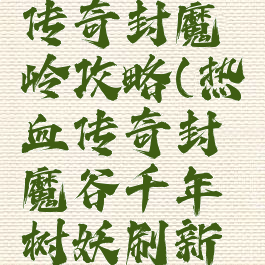 传奇封魔
岭攻略(热
血传奇封
魔谷千年
树妖刷新